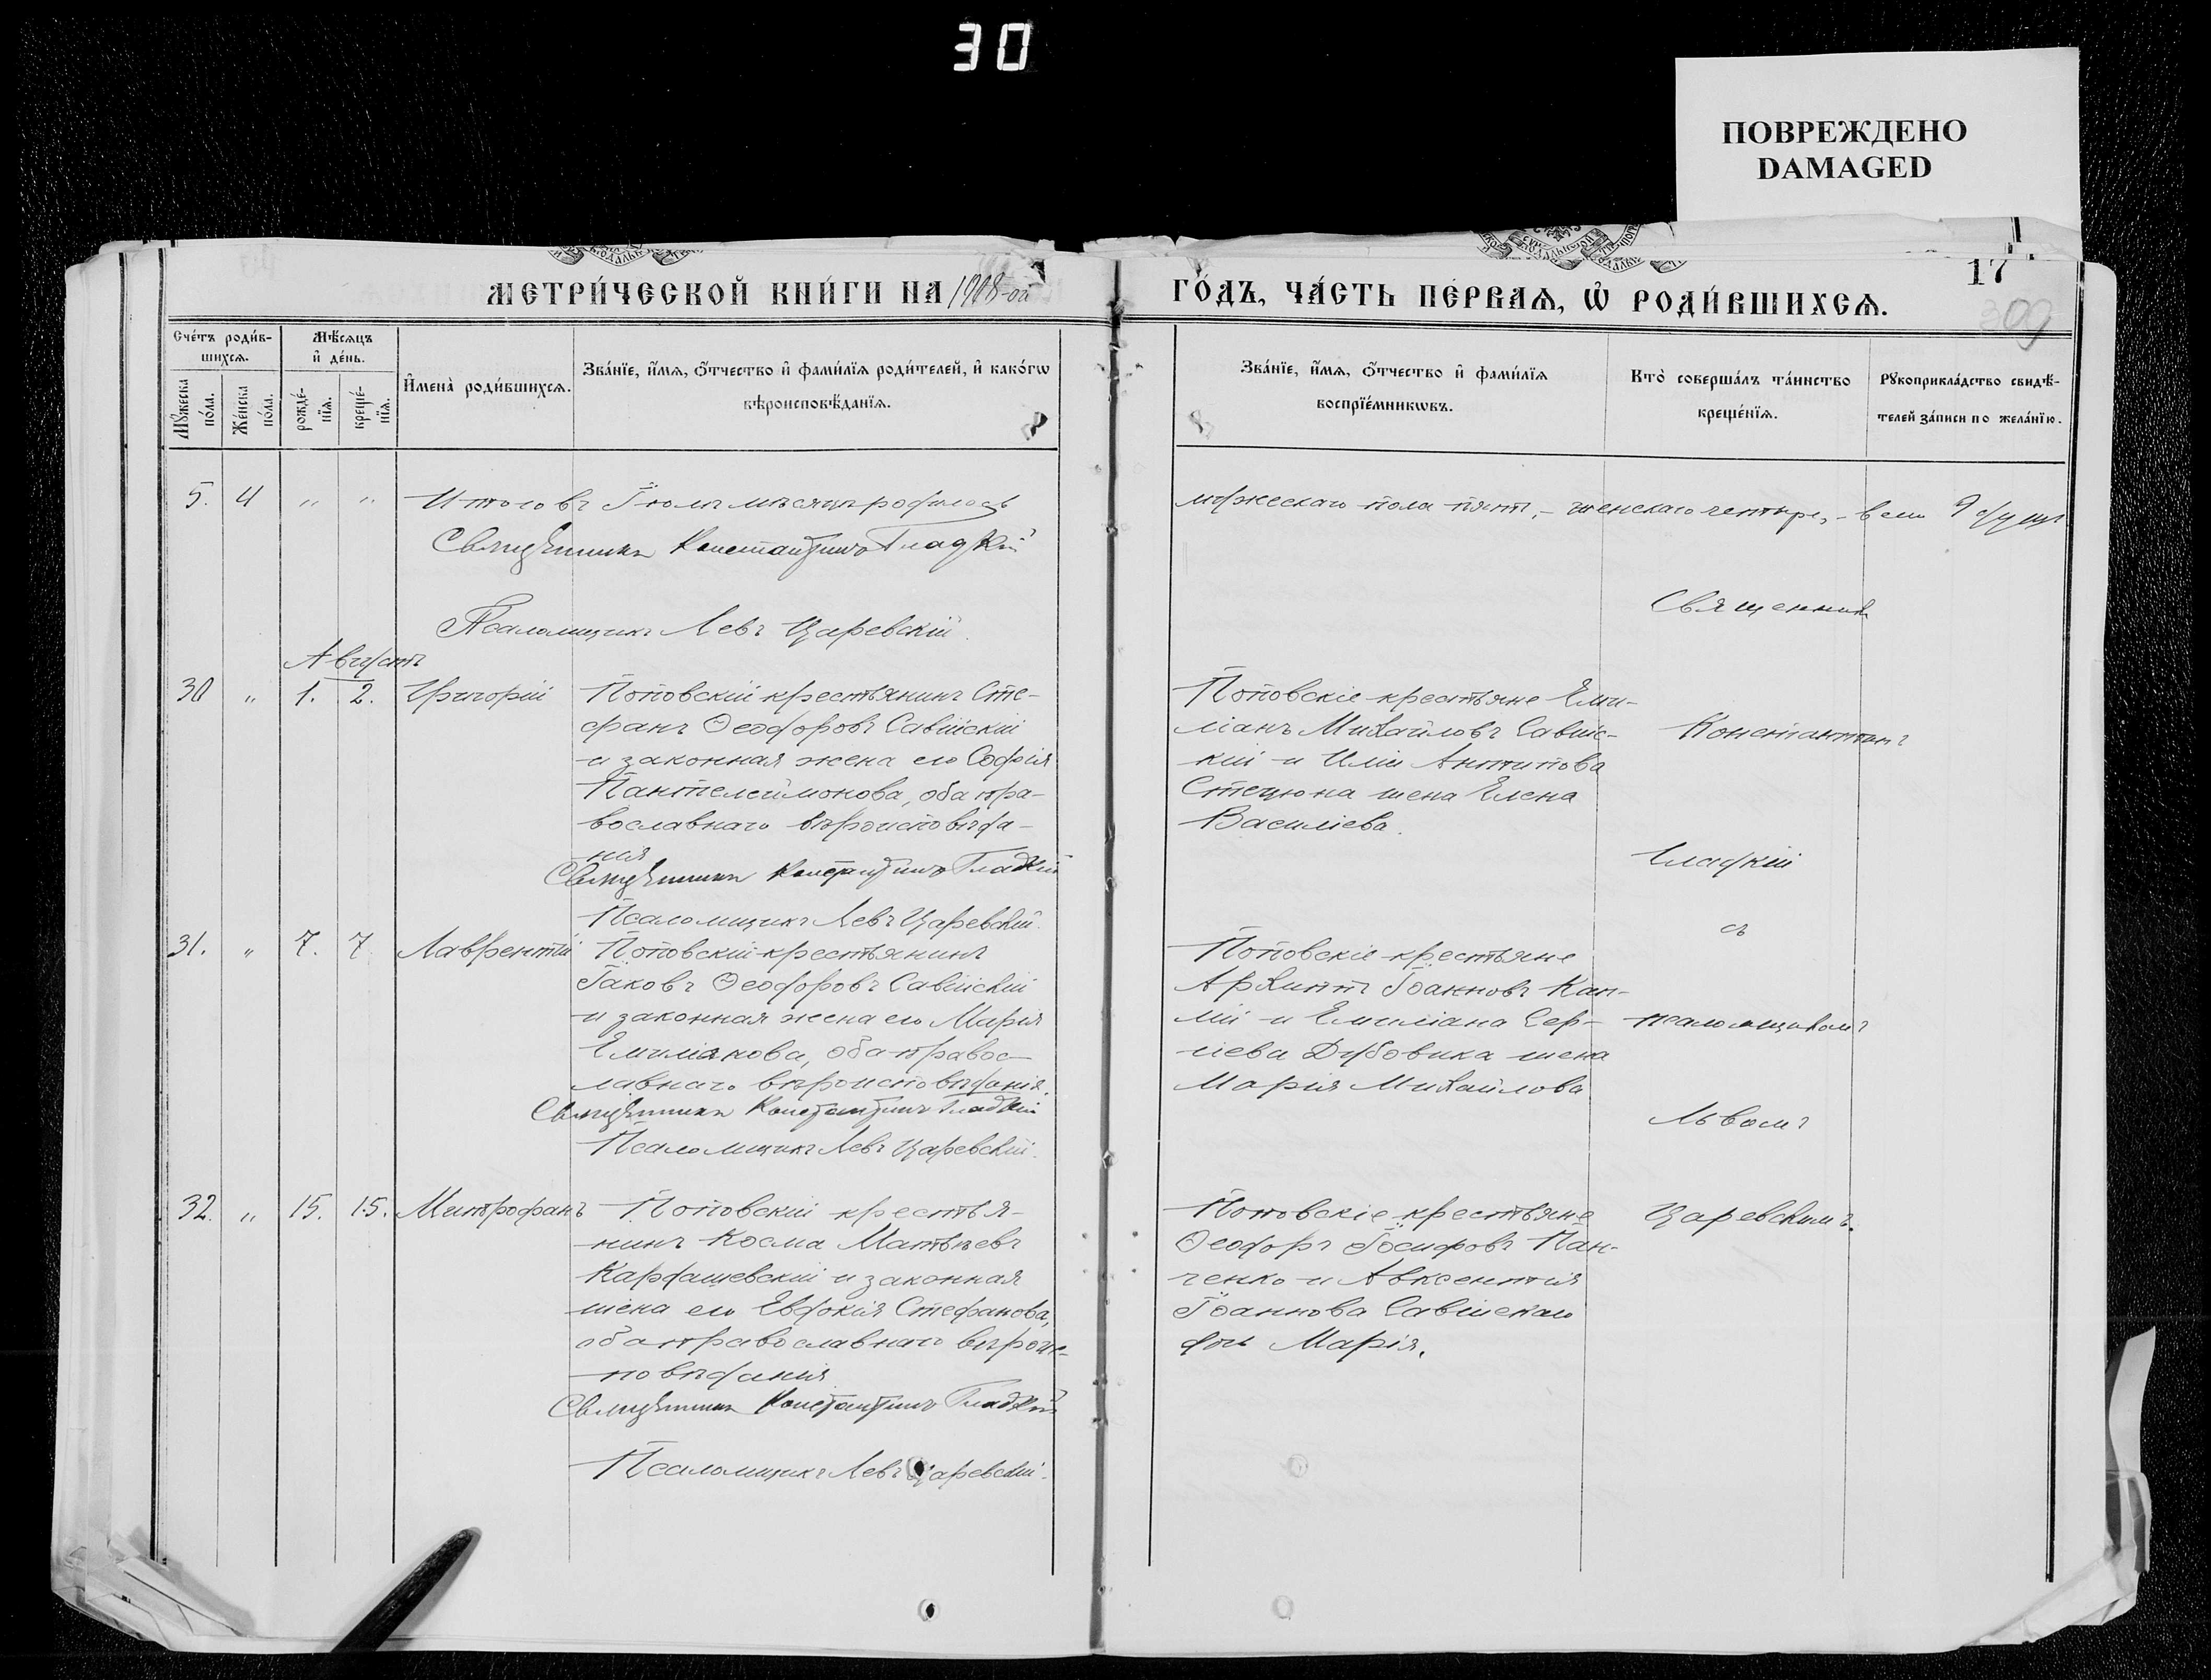 30
ПОВРЕЖДЕНО
DAMAGED
МЕТРИ́ЧЕСКОЙ КНИ́ГИ НА 1908-ой
ГО́ДЪ, ЧА́СТЬ ПЕ́РВАѦ, Ѡ҆ РОДИ́ВШИХСѦ.
17
309
Сче́тъ роди́в-
шихсѧ.
Мѣ́сѧцъ
и҆ де́нь.
Мꙋ́жеска
по́ла.
Же́нска
по́ла.
рожде́-
нїѧ.
креще́-
нїѧ.
И҆мена̀ роди́вшихсѧ.
Зва́нїе, и҆́мѧ, ѻ҆́тчество и҆ фами́лїѧ роди́телей, и҆ како́гѡ
вѣроисповѣ́данїѧ.
Зва́нїе, и҆́мѧ, ѻ҆́тчество и҆ фами́лїѧ
воспрїе́мникѡвъ.
Кто̀ соверша́лъ та́инство
креще́нїѧ.
Рꙋкоприкла́дство свидѣ́-
телей за́писи по жела́нїю.
5. 4 " " Итого въ Іюлѣ мѣсяцѣ родилось
мужескаго пола пять, - женскаго четыре, - всего 9 душъ
Священникъ Константинъ Гладкій
Псаломщикъ Левъ Царевскій.
Августъ
30 " 1. 2. Григорій Поповскій крестьянинъ Сте-
фанъ Ѳеодоровъ Савійскій
и законная жена его Софія
Пантелеймонова, оба пра-
вославнаго вѣроисповѣда-
нія
Священникъ Константинъ Гладкій
Псаломщикъ Левъ Царевскій.
Поповскіе крестьяне Еми-
ліанъ Михайловъ Савійс-
кій и Иліи Антипова
Стецюна жена Елена
Василіева.
Священникъ
Константинъ
Гладкій
съ
псаломщикомъ
Львомъ
Царевскимъ.
31. " 7. 7 Лаврентій Поповскій крестьянинъ
Іаковъ Ѳеодоровъ Савійскій
и законная жена его Марія
Емиліанова, оба правос-
лавнаго вѣроисповѣданія.
Священникъ Константинъ Гладкій
Псаломщикъ Левъ Царевскій.
Поповскіе крестьяне
Архиппъ Іоанновъ Кап-
лій и Емиліана Сер-
гіева Дубовика жена
Марія Михайлова
32. " 15. 15. Митрофанъ Поповскій крестья-
нинъ Косма Матѳѣевъ
Кардашевскій и законная
жена его Евдокія Стефанова,
оба православнаго вѣроис-
повѣданія
Священникъ Константинъ Гладкій
Псаломщикъ Левъ Царевскій.
Поповскіе крестьяне
Ѳеодоръ Іосифовъ Пан-
ченко и Авксентія
Іоаннова Савійскаго
дочь Марія.